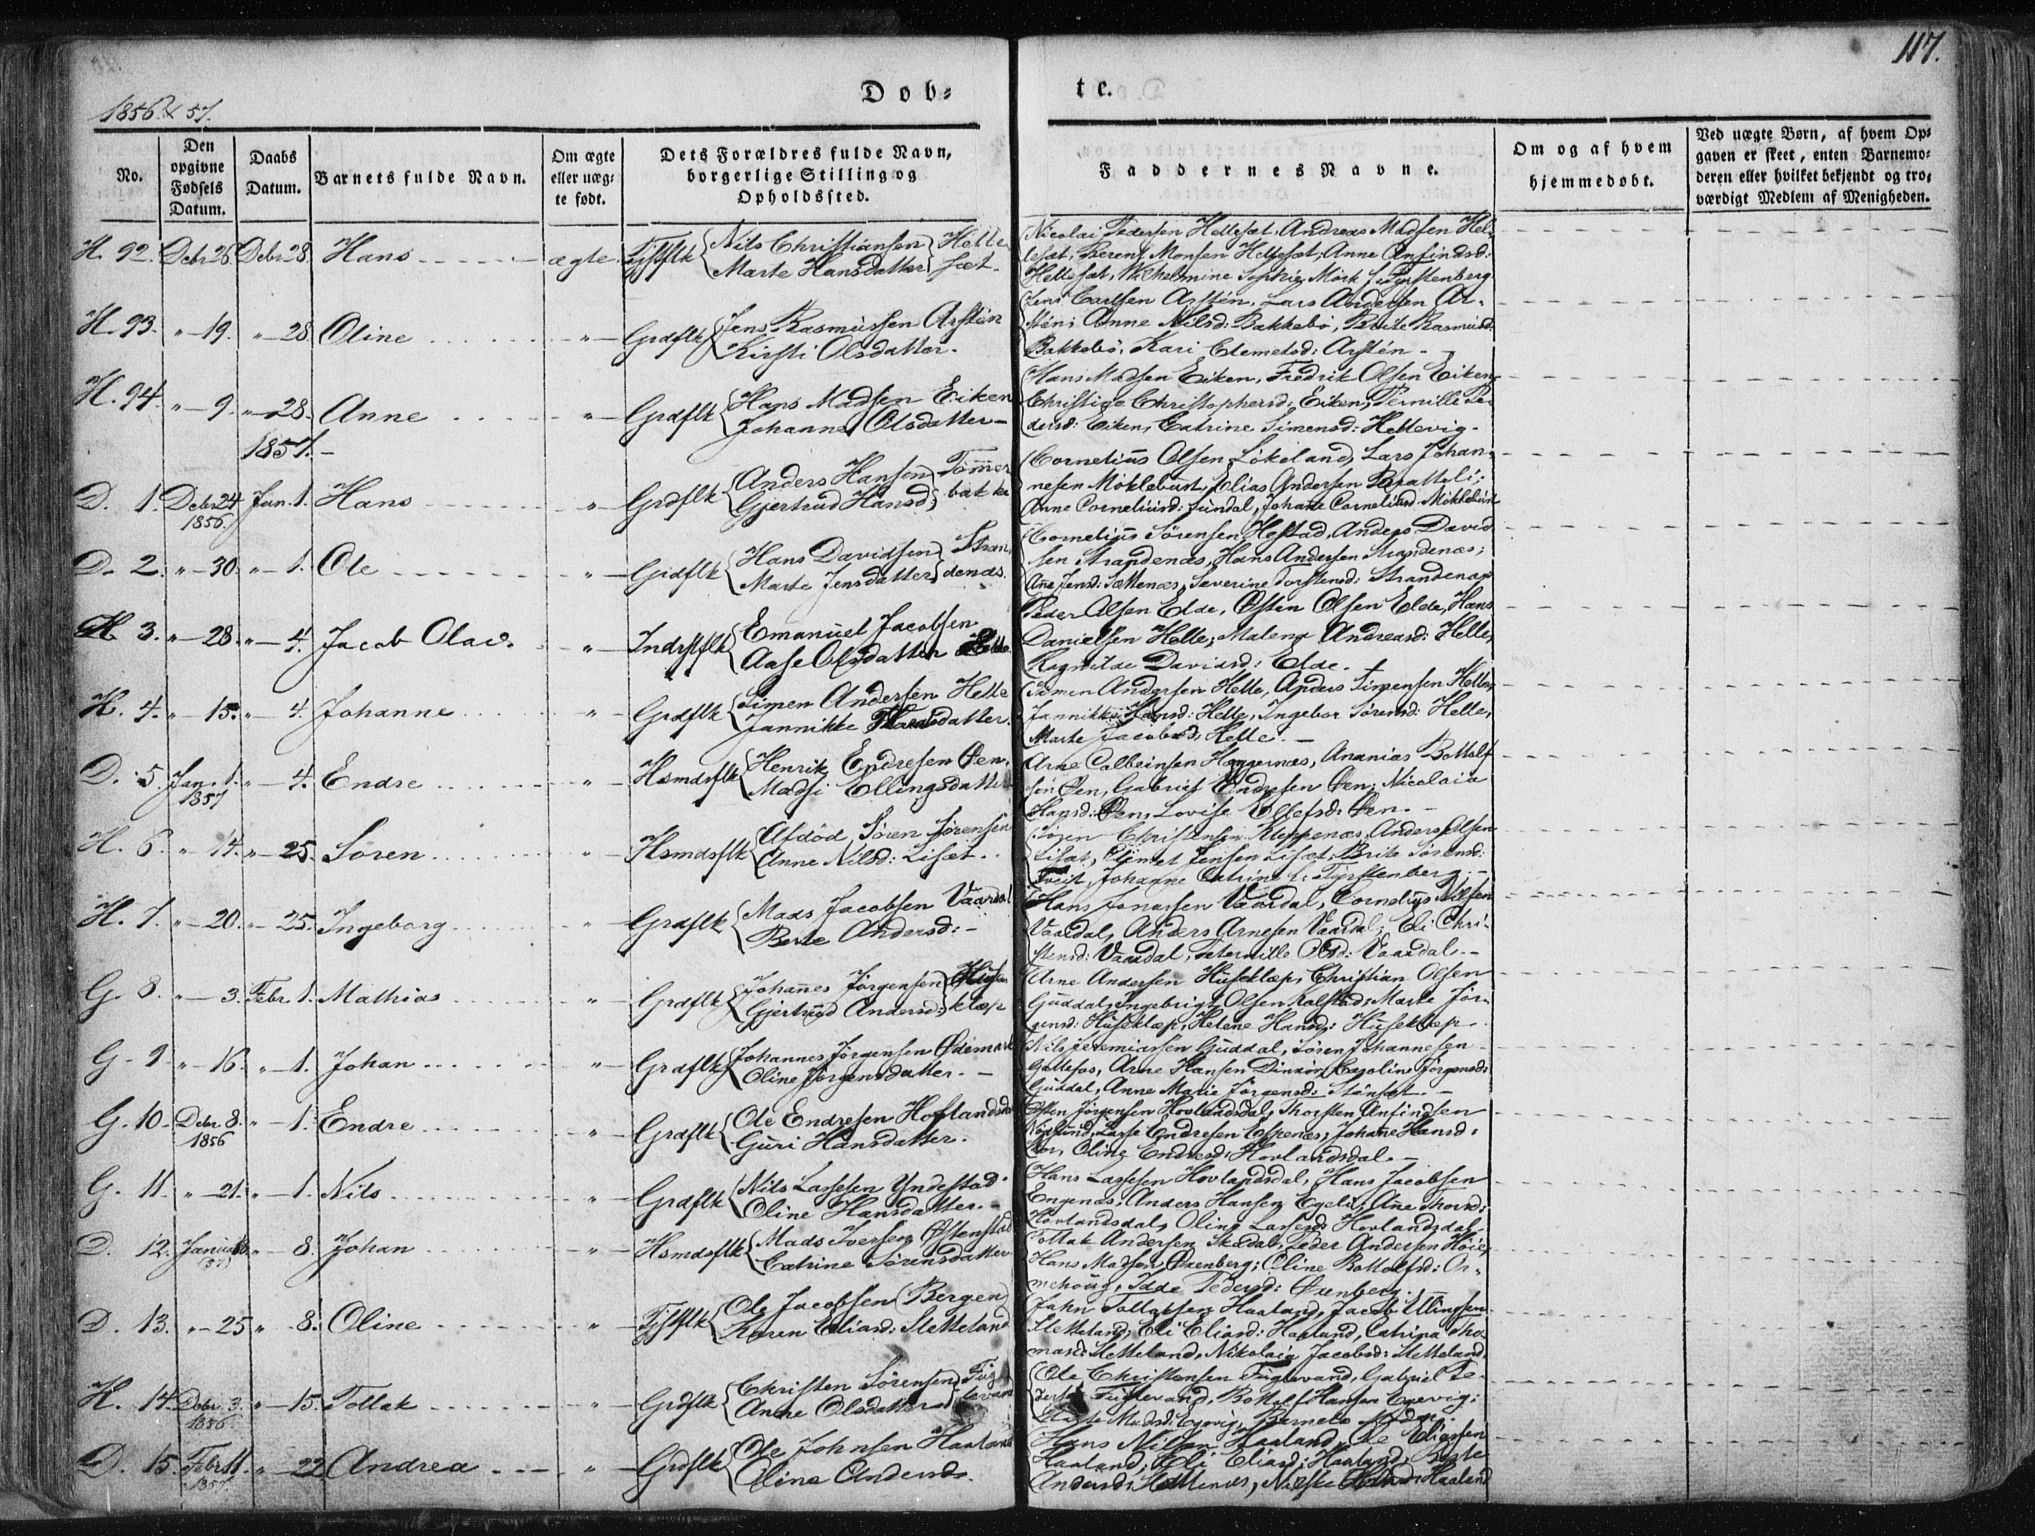 117.
1856 & 57.
Dob-
te.
No.
Den opgivne Fødsels Datum.
Daabs Datum.
Barnets fulde Navn.
Om ægte eller uæg- te født.
Dets Forældres fulde Navn, borgerlige Stilling og Opholdssted.
Faddernes Navne.
Om og af hvem hjemmedøbt.
Ved uægte Børn, af hvem Op- gaven er skeet, enten Barnemo- deren eller hvilket bekjendt og tro- værdigt Medlem af Menigheden.
H. 92. Debr 26. Debr 28. Hans ægte Nils Christiansen Marte Hansdatter Helle- sæt.
Nicolai Pedersen Hellesæt, Andreas Madsen Hel-
lesæt, Berent Monsen Hellesæt, Anne Anfindsd:
Hellesæt, Wilhelmine Sophie Mörk f. Fyrstenberg
H. 93. " 19. " 28. Oline " Grdflk Jens Rasmussen Arstén Kirsti Olsdatter.
Jens Carlsen Arstén, Lars Andersen Ar-
stén; Anne Nilsd: Bakkebö, Brite Rasmusd:
Bakkebö, Kari Clemetsd: Arstén.
H. 94. " 9. " 28. Anne " Grdflk Hans Madsen Eiken Johanne Olsdatter
Hans Madsen Eiken, Fredrik Olsen Eiken,
Christine Christophersd: Eiken, Pernille Pe-
dersd: Eiken, Catrine Simensd: Hellevig.
1857.
D. 1. Debr 24. 1856. Jan. 1. Hans " Grdflk Anders Hansen Gjertrud Hansd: Tömmer bakke
Cornelius Olsen Lökeland, Lars Johan-
nesen Möklebust, Elias Andersen Bratteli;
Anne Corneliusd: Sundal, Johane Corneliusd: Möklebust
D. 2. " 30. " 1. Ole " Grdflk Hans Davidsen Marte Jensdatter Stran- denæs.
Cornelius Sörensen Hestad, Anders David
sen Strandenæs, Hans Andersen Strandenæs;
Ane Jensd: Sættenæs, Severine Torstensd: Strandenæs
H. 3. " 28. " 4. Jacob Olai. " Indrstflk Emanuel Jacobsen Aase Olsdatter Helle.
Peder Olsen Elde, Östen Olsen Elde, Hans
Danielsen Helle; Malene Andreasd: Helle,
Ragnilde Davidsd: Elde.
H. 4. " 15. " 4. Johanne " Grdflk Simen Andersen Helle Jannikke Hansdatter.
Simen Andersen Helle, Anders Simensen Helle,
Jannikke Hansd: Helle, Ingebor Sörensd: Helle,
Marte Jacobsd: Helle.
D. 5. Jan. 1. 1857 " 4. Endre " Hsmdsflk Henrik Endresen Öen, Madsi Ellingsdatter
Arne Colbeinsen Hoggernæs, Ananias Bottolf
sön Öen, Gabriel Endresen Öen; Nicolaia
Hansd: Öen, Lovise Ellefsd: Öen.
H. 6. " 14. " 25. Sören " Hsmdsflk Afdöd Sören Sörensen Anne Nilsd: Lisæt.
Sören Christensen Kleppenæs, Anders Olsen
Lisæt, Clemet Jensen Lisæt; Brite Sörensd:
Tveit, Johanne Catrine f: Fyrstenberg.
H. 7. " 20. " 25. Ingeborg " Grdflk Mads Jacobsen Vaardal Berte Andersd:
Hans Jonassen Vaardal, Cornelius Nilsen
Vaardal, Anders Arnesen Vaardal; Eli Chri-
stensd: Vaardal, Peternille Olsd: Vaardal.
G. 8. " 3. Febr 1. Mathias " Grdflk Johanes Jörgensen Gjertrud Andersd: Huse- klæp
Arne Andersen Huseklæp, Christian Olsen
Guddal, Ingebrigt Olsen Kalstad; Marte Jör-
gensd: Huseklæp, Helene Hansd: Huseklæp.
G. 9. " 16. " 1. Johan " Grdflk Johannes Jörgensen Ödemark Oline Jörgensdatter.
Nils Jeremiassen Guddal, Sören Johannesen
Gallefos, Arne Hansen Dinsön; Caroline Jörgensd:
Guddal, Anne Marie Jörgensd: Stönsæt.
G. 10. Debr 8. 1856 " 1. Endre " Grdflk Ole Endresen Hoflandsdal Guri Hansdatter.
Östen Jörgensen Hovlandsdal, Thorsten Anfindsen
Lasse Endresen Espenæs; Johane Hansd:
Oline Endresd: Hovlandsdal.
G. 11. " 21. " 1. Nils " Grdflk Nils Lassesen Yndestad. Oline Hansdatter.
Hans Lassesen Hovlandsdal, Hans Jacobsen
Engenæs, Anders Hansen Ane Thorsd:
Hovlandsdal, Oline Lassesd: Hovlandsdal
D. 12. 57. " 8. Johan " Hsmdsflk Mads Iversen Östenstad Catrine Sörensdatter
Tollak Andersen Skadal, Peder Andersen Höie,
Hans Madsen Öxenberg; Oline Bottolfsd: Or-
mehoug, Idde Pedersd: Öxenberg.
D. 13. " 25 " 8. Oline " Ole Jacobsen (Bergen) Karen Eliasd: Sletteland
John Tollaksen Haaland, Jacob Ellingsen
Sletteland; Eli Eliasd: Haaland, Catrina Tho-
masd: Sletteland, Nikolaia Jacobsd: Sletteland.
H. 14. Debr 3. 1856. " 15. Tollak " Grdflk Christen Sörensen Anne Olsdatter
Ole Christensen Fuglevand, Gabriel Pe-
dersen Fuglevand, Bottolf Hansen Egevig;
Madsd: Egevig, Barnets Moder.
D. 15. Febr 11. 1857. " 22. Andrea " Grdflk Ole Johnsen Haaland Oline Andersd.
Hans Nilsen Haaland, Ole Eliassen
Haaland; Eli Eliasd: Haaland, Berte
Andersd: Haaland